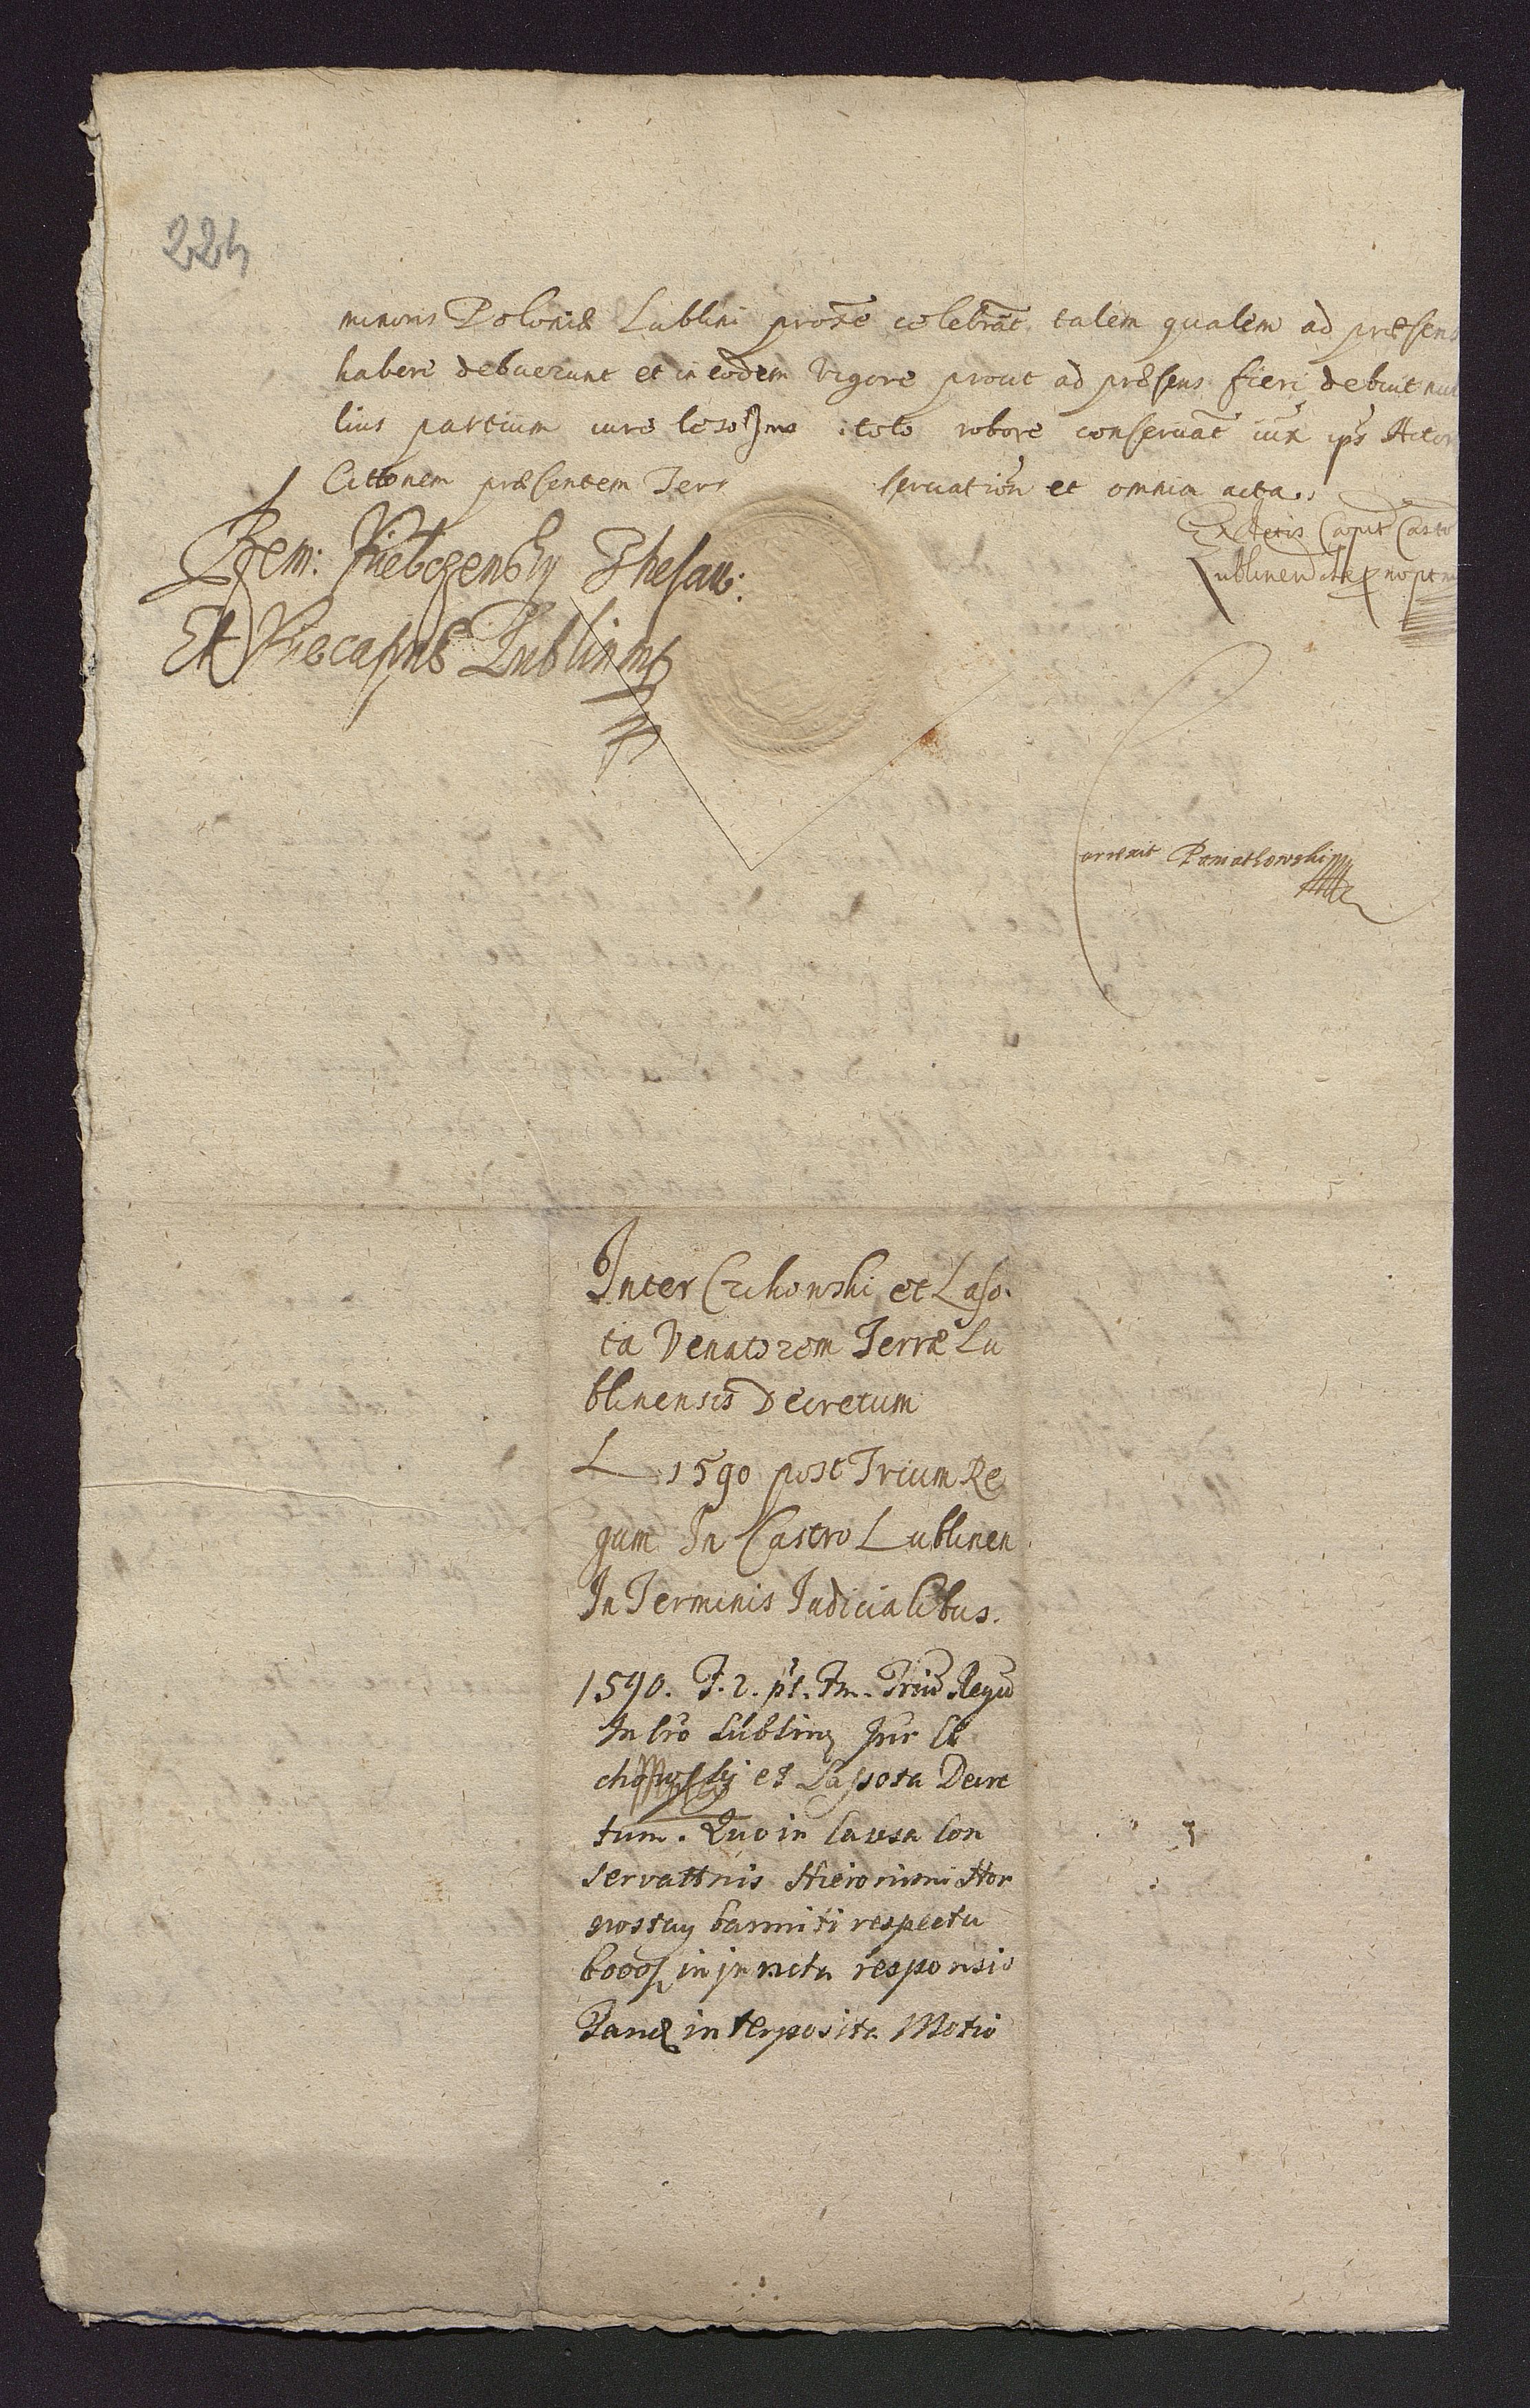 224
minoris Poloniæ Lublini proxe celebrat talem qualem ad præsens
habere debuerunt et in eodem vigore prout ad præsens fieri debuit nul
lius partium iure leso toto robore conseruat iux ips Actor
Cittonem præsentem Terr seruation et omnia acta.
Ex Actis Capit Castr
Lublinen
Thesau:
Et Lublin
orrexit Poniatkowski
Inter Czehowski et Laso.
ta Venatorem Terræ Lu
blinensis Decretum
L 1590 post Trium Re
gum In Castro Lublinen
In Terminis Judicialibus.
1590. F. 2. pt. Fm. Triu Regu
In Cro Lublin Inr Cz
chowskij et Lassota Decre
tum. Quo in Causa Con
servattnis Hieronimi Hor
nostay banniti respectu
bonor injuncta responsio
Tandẽ interposita Motio